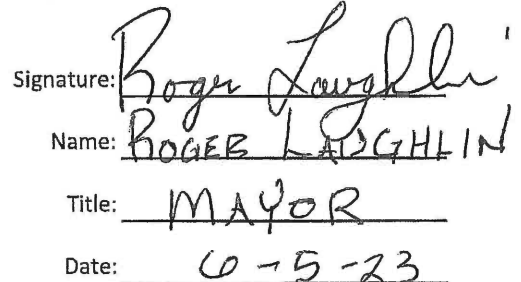 Signature: Roger Laughlin
Name: ROGER LAUGHLIN
Title: MAYOR
Date: 6-5-23